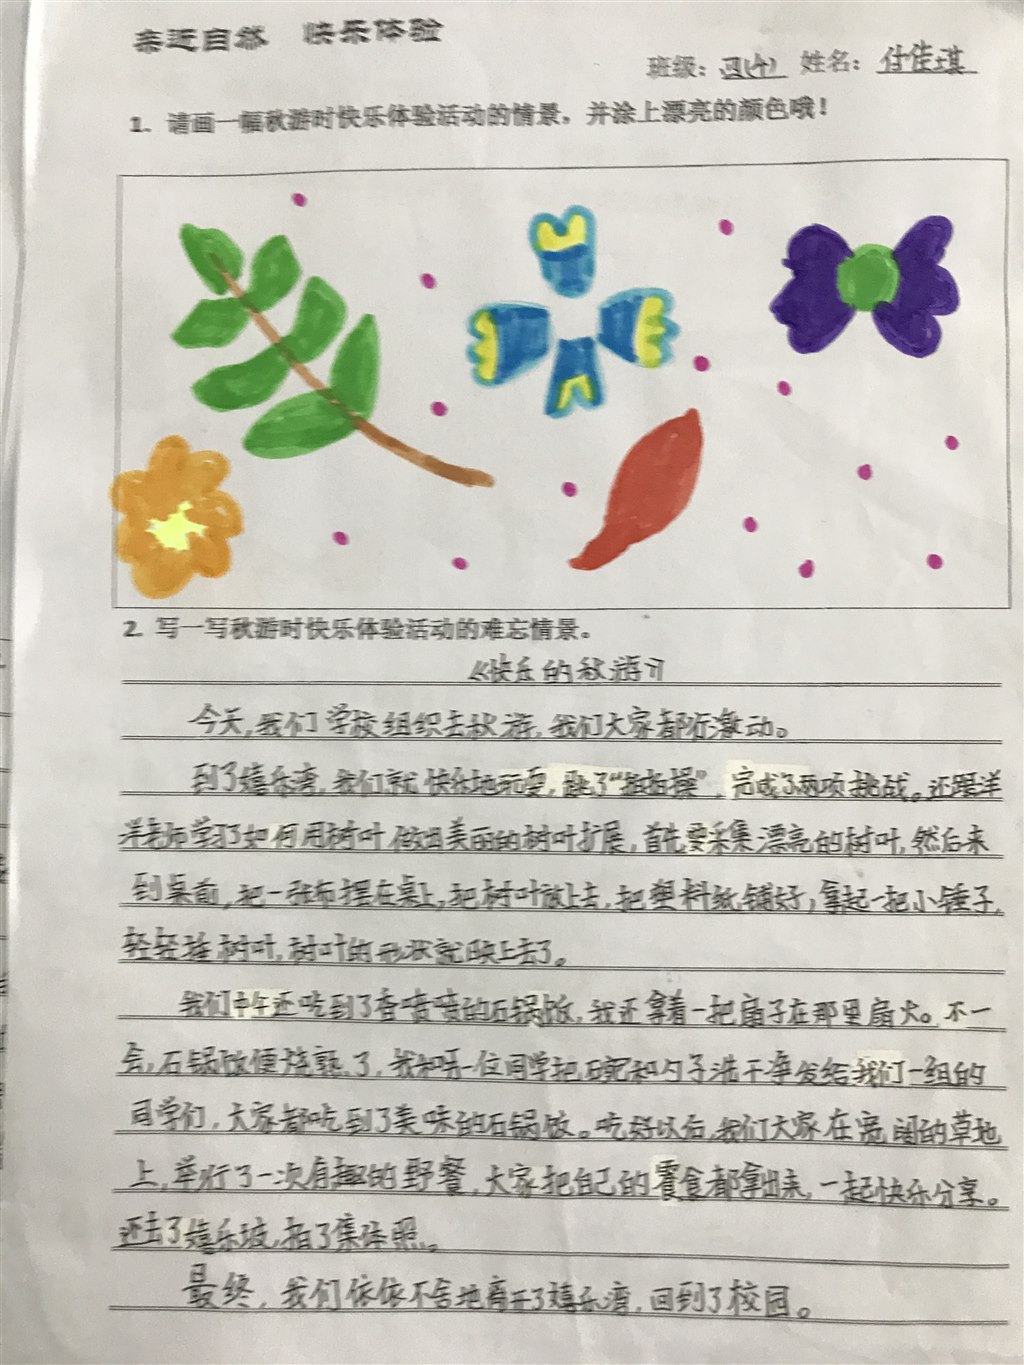 亲近自然 快乐体验
班级：四(4) 姓名：付佳琪
1. 请画一幅秋游时快乐体验活动的情景，并涂上漂亮的颜色哦！
2. 写一写秋游时快乐体验活动的难忘情景。
《快乐的秋游》
今天，我们学校组织去秋游，我们大家都很激动。
到了嬉乐湾，我们就快乐地玩耍，跳了“拍拍操”，完成了两项挑战。还跟洋
洋老师学习了如何用树叶做出美丽的树叶扩展，首先要采集漂亮的树叶，然后来
到桌前，把一张布摆在桌上，把树叶放上去，把塑料纸铺好，拿起一把小锤子，
轻轻锤树叶，树叶的形状就映上去了。
我们中午还吃到了香喷喷的石锅饭，我还拿着一把扇子在那里扇火。不一
会，石锅饭便烧熟了，我和另一位同学把碗和勺子洗干净发给我们一组的
同学们，大家都吃到了美味的石锅饭。吃好以后，我们大家在宽阔的草地
上，举行了一次有趣的野餐，大家把自己的零食都拿出来，一起快乐分享。
还去了嬉乐坡，拍了集体照。
最终，我们依依不舍地离开了嬉乐湾，回到了校园。